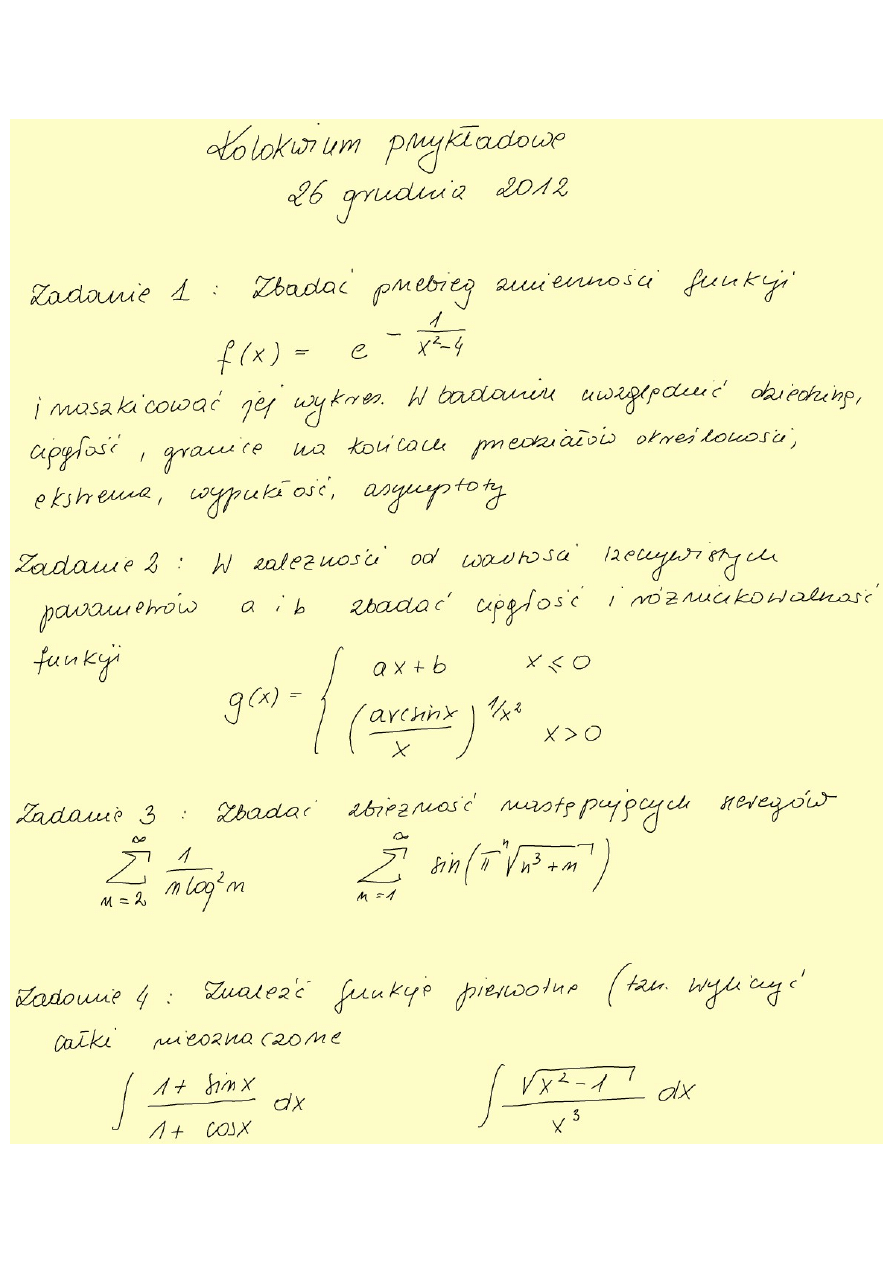 Kolokwium przykładowe
26 grudnia 2012
Zadanie 1 : Zbadać przebieg zmienności funkcji
f(x) = e^{- \frac{1}{x^2-4}}
i naszkicować jej wykres. W badaniu uwzględnić dziedzinę,
ciągłość, granice na końcach przedziałów określoności,
ekstrema, wypukłość, asymptoty
Zadanie 2 : W zależności od wartości rzeczywistych
parametrów a i b zbadać ciągłość i różniczkowalność
funkcji
g(x) = \begin{cases} ax+b & x \leqslant 0 \\ \left(\frac{arcsinx}{x}\right)^{1/x^2} & x>0 \end{cases}
Zadanie 3 : Zbadać zbieżność następujących szeregów
\sum_{n=2}^{\infty} \frac{1}{n log^2 n} \sum_{n=1}^{\infty} sin(π \sqrt[n]{n^3+n})
Zadanie 4 : Znaleźć funkcje pierwotne (tzn. wyliczyć
całki nieoznaczone
\int \frac{1+ sinx}{1+ cosx} dx \int \frac{\sqrt{x^2-1}}{x^3} dx